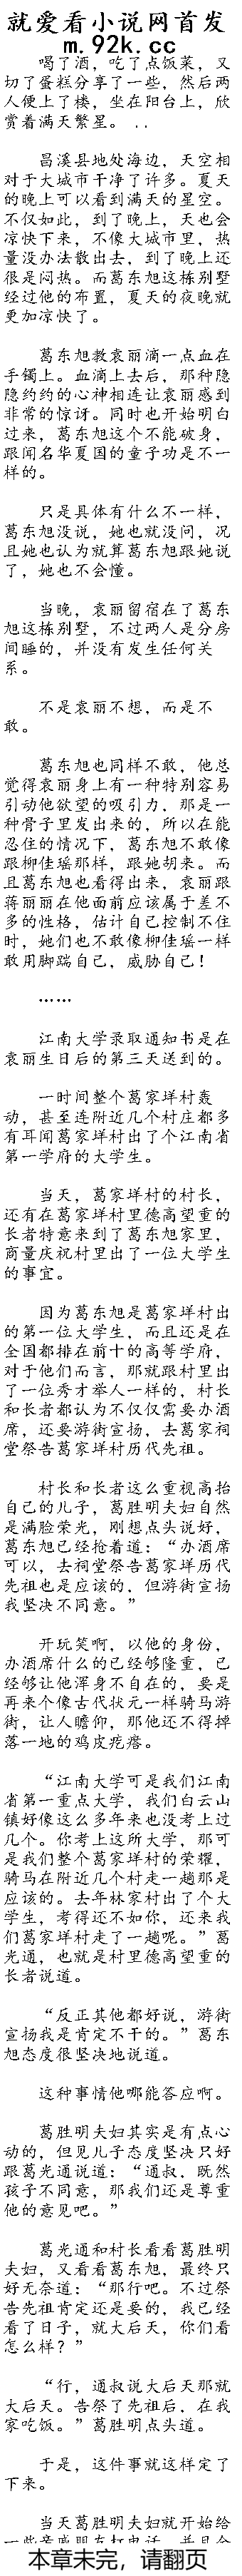 就爱看小说网首发
m.92k.cc
喝了酒，吃了点饭菜，又
切了蛋糕分享了一些，然后两
人便上了楼，坐在阳台上，欣
赏着满天繁星。 ..
昌溪县地处海边，天空相
对于大城市干净了许多。夏天
的晚上可以看到满天的星空。
不仅如此，到了晚上，天也会
凉快下来，不像大城市里，热
量没办法散出去，到了晚上还
很是闷热。而葛东旭这栋别墅
经过他的布置，夏天的夜晚就
更加凉快了。
葛东旭教袁丽滴一点血在
手镯上。血滴上去后，那种隐
隐约约的心神相连让袁丽感到
非常的惊讶。同时也开始明白
过来，葛东旭这个不能破身，
跟闻名华夏国的童子功是不一
样的。
只是具体有什么不一样，
葛东旭没说，她也就没问，况
且她也认为就算葛东旭跟她说
了，她也不会懂。
当晚，袁丽留宿在了葛东
旭这栋别墅，不过两人是分房
间睡的，并没有发生任何关
系。
不是袁丽不想，而是不
敢。
葛东旭也同样不敢，他总
觉得袁丽身上有一种特别容易
引动他欲望的吸引力，那是一
种骨子里发出来的，所以在能
忍住的情况下，葛东旭不敢像
跟柳佳瑶那样，跟她胡来。而
且葛东旭也看得出来，袁丽跟
蒋丽丽在他面前应该属于差不
多的性格，估计自己控制不住
时，她们也不敢像柳佳瑶一样
敢用脚踹自己，威胁自己！
……
江南大学录取通知书是在
袁丽生日后的第三天送到的。
一时间整个葛家垟村轰
动，甚至连附近几个村庄都多
有耳闻葛家垟村出了个江南省
第一学府的大学生。
当天，葛家垟村的村长，
还有在葛家垟村里德高望重的
长者特意来到了葛东旭家里，
商量庆祝村里出了一位大学生
的事宜。
因为葛东旭是葛家垟村出
的第一位大学生，而且还是在
全国都排在前十的高等学府，
对于他们而言，那就跟村里出
了一位秀才举人一样的，村长
和长者都认为不仅仅需要办酒
席，还要游街宣扬，去葛家祠
堂祭告葛家垟村历代先祖。
村长和长者这么重视高抬
自己的儿子，葛胜明夫妇自然
是满脸荣光，刚想点头说好，
葛东旭已经抢着道：“办酒席
可以，去祠堂祭告葛家垟历代
先祖也是应该的，但游街宣扬
我坚决不同意。”
开玩笑啊，以他的身份，
办酒席什么的已经够隆重，已
经够让他浑身不自在的，要是
再来个像古代状元一样骑马游
街，让人瞻仰，那他还不得掉
落一地的鸡皮疙瘩。
“江南大学可是我们江南
省第一重点大学，我们白云山
镇好像这么多年来也没考上过
几个。你考上这所大学，那可
是我们整个葛家垟村的荣耀，
骑马在附近几个村走一趟那是
应该的。去年林家村出了个大
学生，考得还不如你，还来我
们葛家垟村走了一趟呢。”葛
光通，也就是村里德高望重的
长者说道。
“反正其他都好说，游街
宣扬我是肯定不干的。”葛东
旭态度很坚决地说道。
这种事情他哪能答应啊。
葛胜明夫妇其实是有点心
动的，但见儿子态度坚决只好
跟葛光通说道：“通叔，既然
孩子不同意，那我们还是尊重
他的意见吧。”
葛光通和村长看看葛胜明
夫妇，又看看葛东旭，最终只
好无奈道：“那行吧。不过祭
告先祖肯定还是要的，我已经
看了日子，就大后天，你们看
怎么样？”
“行，通叔说大后天那就
大后天。告祭了先祖后，在我
家吃饭。”葛胜明点头道。
于是，这件事就这样定了
下来。
当天葛胜明夫妇就开始给
一些亲戚朋友打电话，并且合
本章未完，请翻页